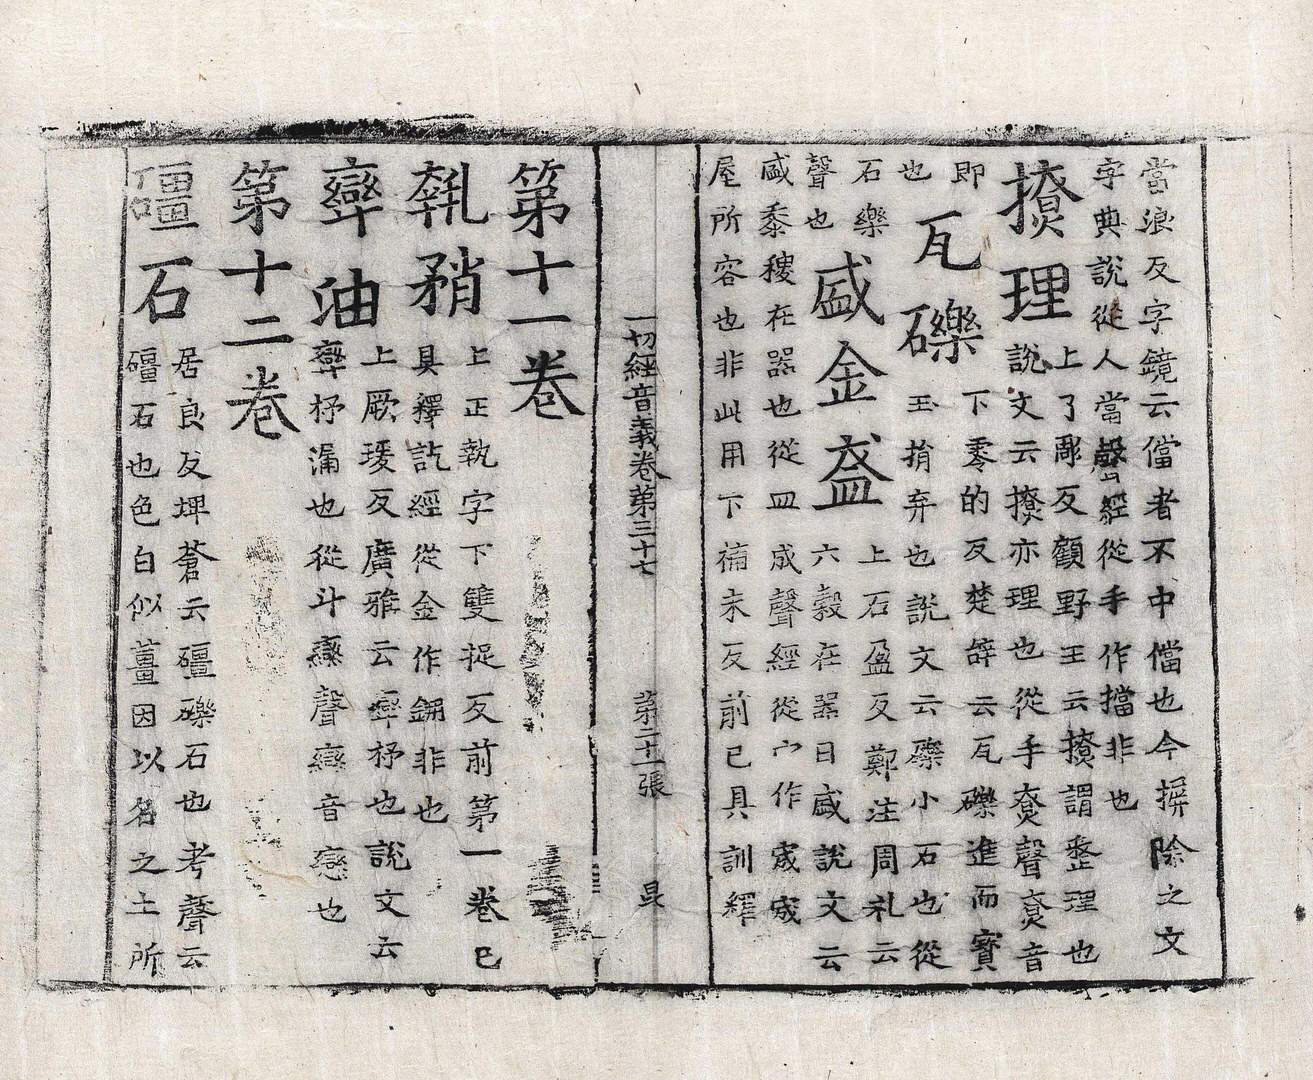 當浪反字鏡云儅者不中儅也今摒除之文
字典說從人當聲經從手作擋非也
撩理
上了彫反顧野王云撩謂整理也
說文云撩亦理也從手尞聲尞音
即
也
瓦礫
下零的反楚辞云瓦礫進而寳
玉捐弃也說文云礫小石也從
石樂
聲也
盛金盔
上石盈反鄭注周礼云
六穀在器曰盛說文云
盛黍稷在器也從皿成聲經從宀作宬宬
屋所容也非此用下補末反前已具訓釋
一切經音義卷第三十七 第二十一張 㫷
第十一卷
執矟
上正執字下雙捉反前第一卷已
具釋訖經從金作鎙非也
㪻油
上厥瑗反廣雅云㪻杼也說文云
㪻杼漏也從斗䜌聲䜌音戀也
第十二卷
礓石
居良反埤蒼云礓礫石也考聲云
礓石也色白似薑因以名之土所